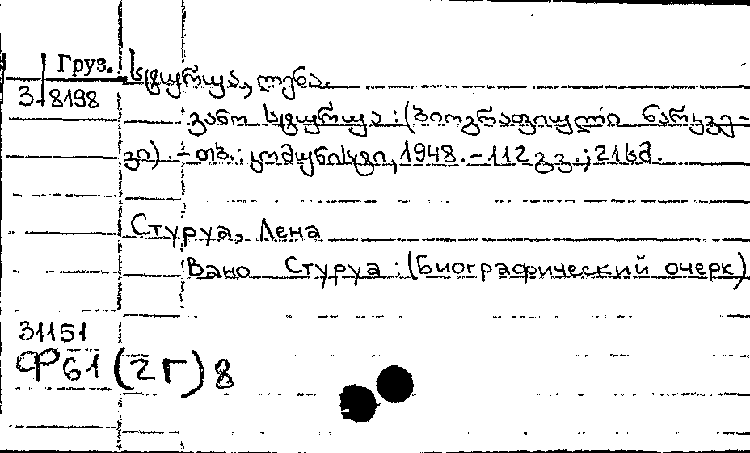 Груз. სტურუა, ლენა.
3-8198
ვანო სტურუა : (ბიოგრაფიული ნარკვე-
ვი). - თბ. : კომუნისტი, 1948. - 112 გვ. ; 21 სმ.
Стуруа, Лена
Вано Стуруа : (биографический очерк)
31151
Ф61(2Г)8